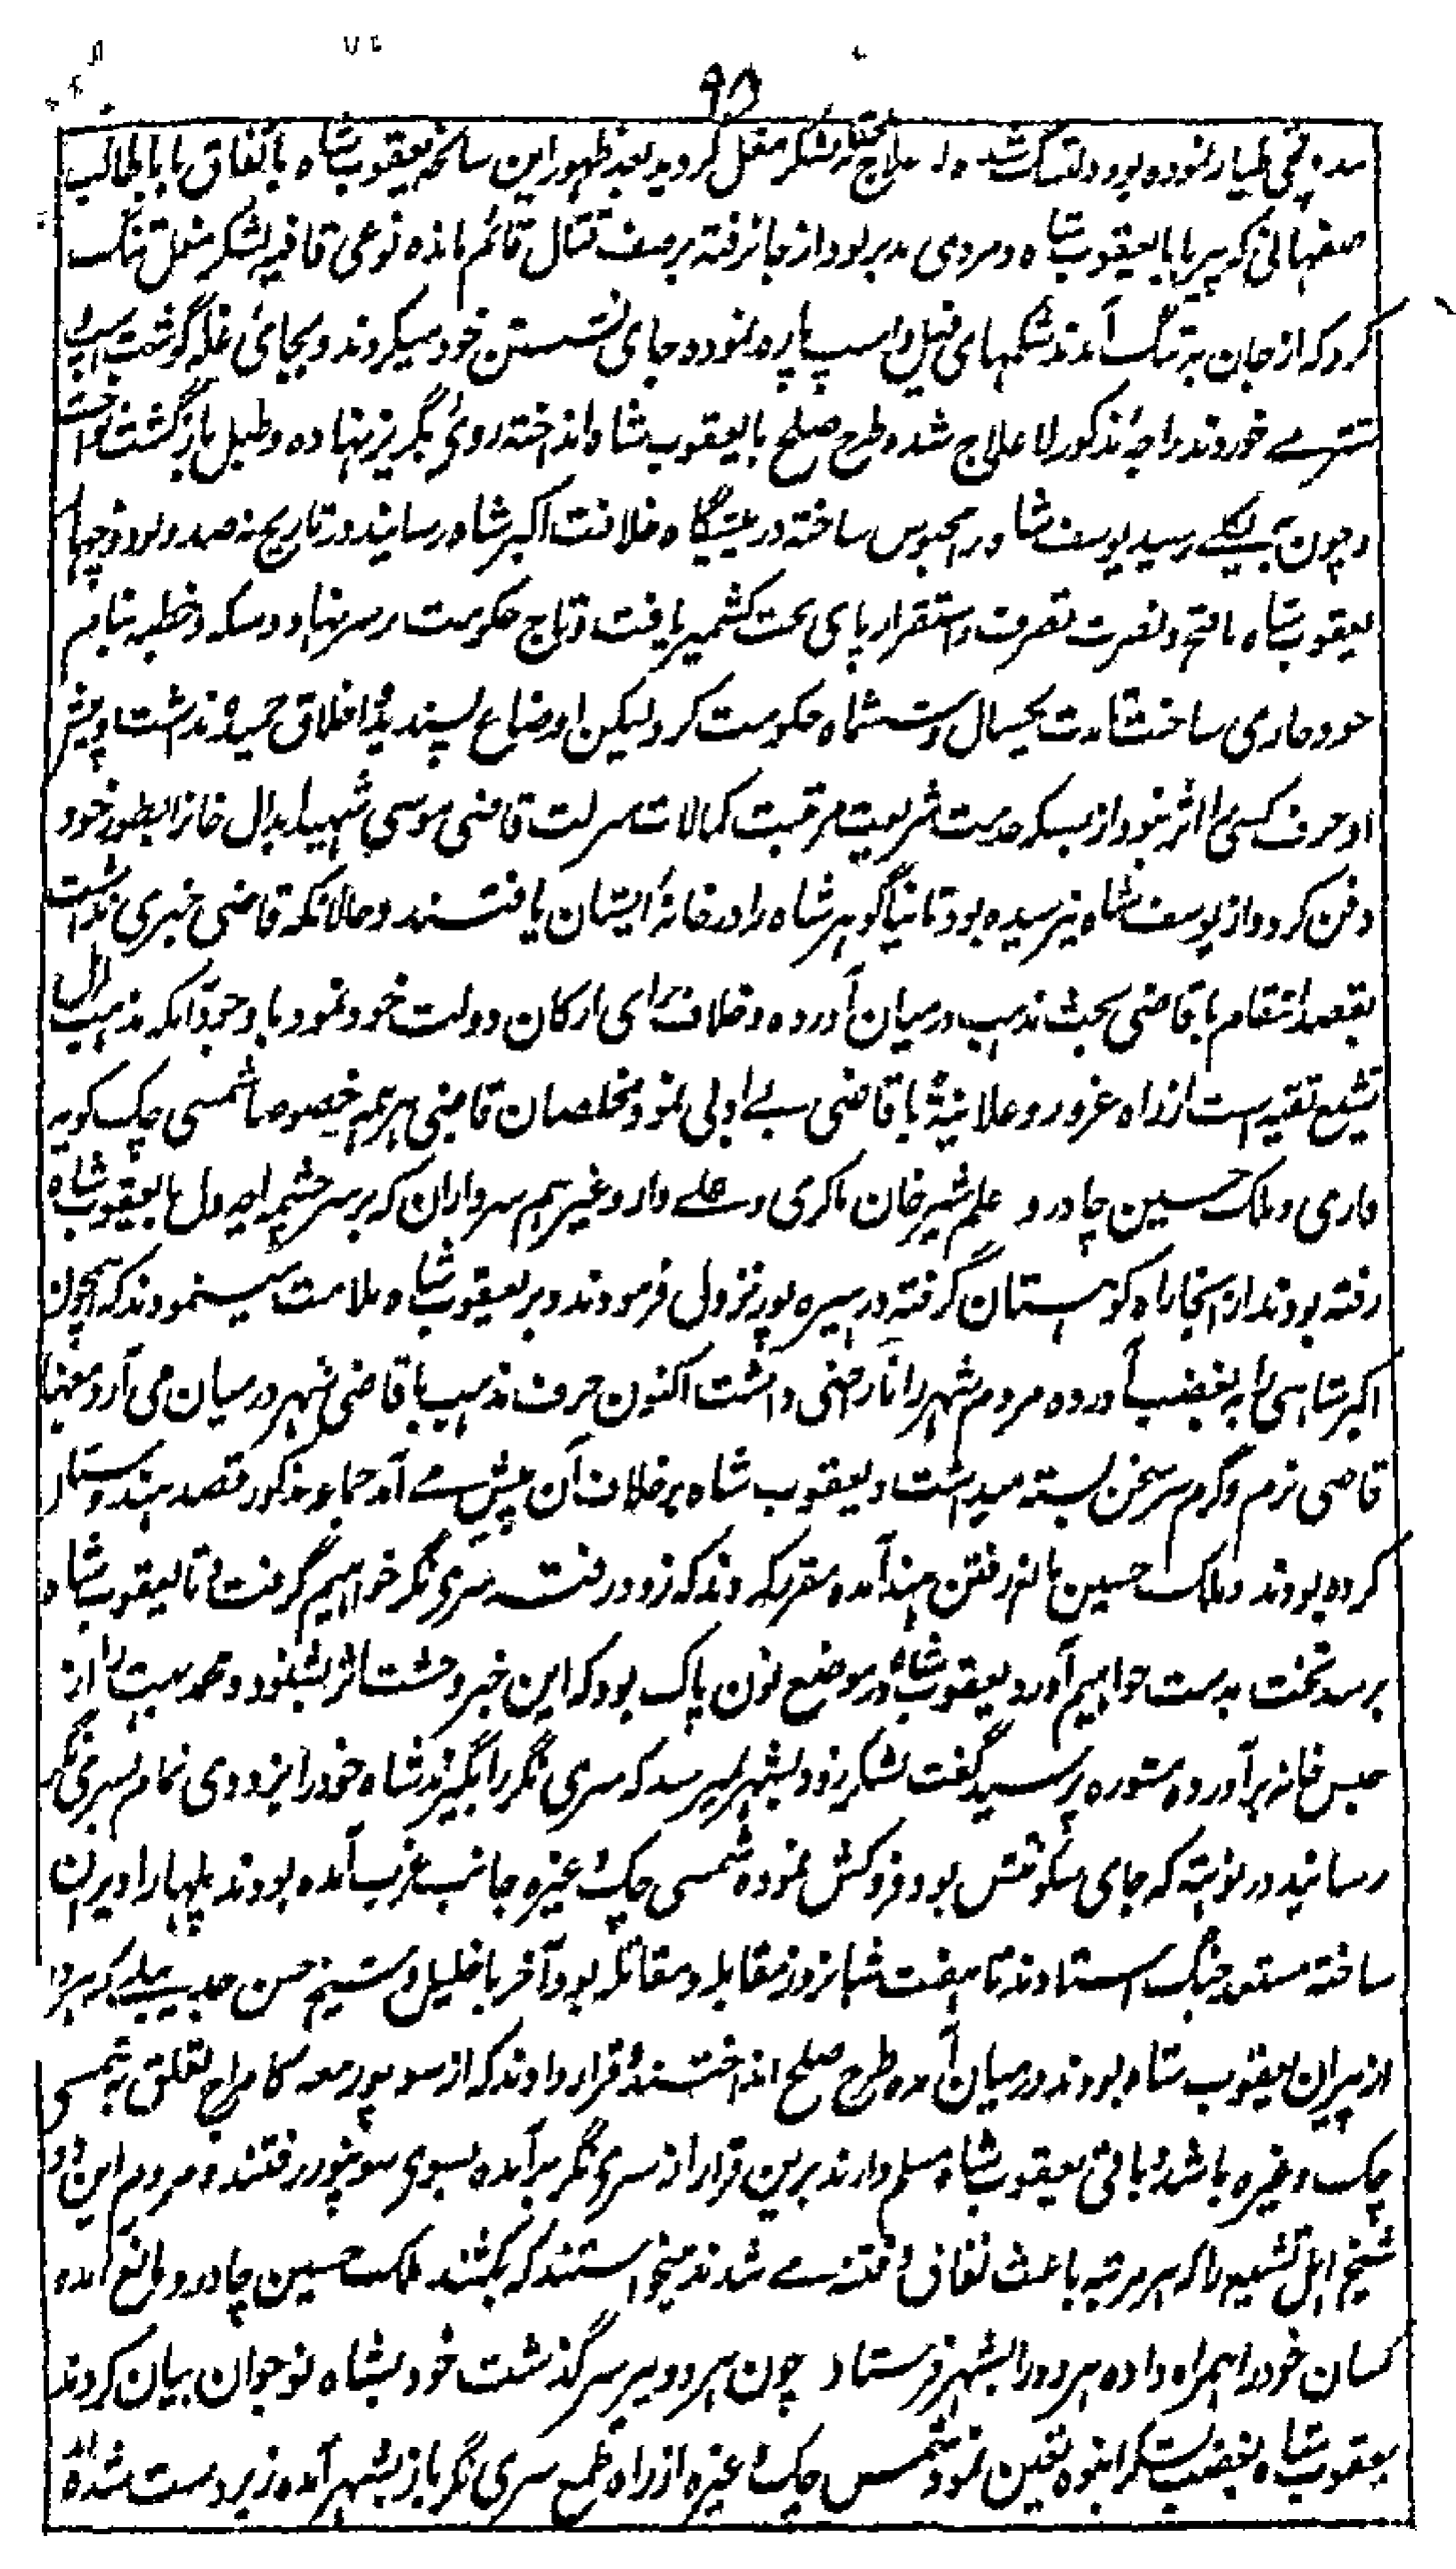 ۹۵
نموده بود دلتنگ شده لشکر مغل گردید بعد ظهور این سانحه یعقوب شاه باتفاق بابا طالب
صفهانی که پیر بابا یعقوب شاه و مردی مدبر بود از جا نرفته بر صف قتال قائم مانده نوعی قافیه لشکر مغل تنگ
کرد که از جان به تنگ آمدند شکمهای فیل و اسپ پاره نموده جای نشستن خود میکردند و بجائی غله گوشت اسپ و
شتر مے خوردند راجه مذکور لا علاج شده طرح صلح با یعقوب شاه انداخته روئ بگریز نهاده و طبل بازگشت نواخت
و چون به رسید یوسف شاه را محبوس ساخته در پیشگاه خلافت اکبر شاه رسانید در تاریخ نهصد و نود و چهار
یعقوب شاه با فتح و نصرت تصرف و استقرار پای تخت کشمیر یافت و تاج حکومت بر سر نهاد و سکه و خطبه بنام
خود جاری ساخت مدت یکسال و ششماه حکومت کرد لیکن اوضاع پسندیده و اخلاق حمیده نداشت و پیش
او حرف کسی را اثر نبود از بسکه خدمت شریعت مرتبت کمالات منزلت قاضی موسی شهید ابدال خانرا بطور خود
دفن کرد و از یوسف شاه نپرسیده بود ثانیا گوهر شاه را در خانهٔ ایشان یافتند و حالانکه قاضی خبری نداشت
بقصد انتقام با قاضی بحث مذهب درمیان آورده و خلاف رای ارکان دولت خود نمود با وجود آنکه مذهب اهل
تشیع تقیه است از راه غرور و علانیهٔ با قاضی بے ادبی نمود مخلصان قاضی خصوصا شمسی چک کوپه
واری و ملک حسین چادرو و علم شیر خان ماکری و علے دار و غیرهم سرداران که بر سر چشمه با یعقوب شاه
رفته بودند از آنجا راه کوهستان گرفته در هیره پور نزول فرمودند و بر یعقوب شاه ملامت مینمودند که همچون
اکبر شاهی را به غضب آورده مردم شهر را ناراضی داشت اکنون حرف مذهب با قاضی شهر درمیان می آرد
قاضی نرم و گرم سر سخن بسته میداشت و یعقوب شاه بر خلاف آن پیش مے آمد مذکور قصد هندوستان
کرده بودند و ملک حسین مانع رفتن هند آمده مقرر کردند که زود رفته سری نگر خواهیم گرفت و تا یعقوب شاه
برسد تخت بدست خواهیم آورد یعقوب شاه در موضع نون پاک بود که این خبر وحشت اثر بشنود و محمد بیت را از
حبس خانه برآورده مشوره پرسید گفت لشکر زود بشهر میرسد که سری نگر را بگیرند شاه خود را بزودی تمام بسری نگر
رسانید در نوهته که جای سکونتش بود فروکش نموده شمسی چک و غیره جانب غرب آمده بودند پلها را ویران
ساخته مستعد جنگ استادند تا هفت شبانروز مقابله و مقاتله بود آخر بابا خلیل و شیخ حسن که هر دو
از پیران یعقوب شاه بودند درمیان آمده طرح صلح انداختند و قرار دادند که از سوپور معه کامراج تعلق به شمسی
چک و غیره باشد و باقی یعقوب شاه مسلم دارند برین قرار از سری نگر برآمده بسوی سوپور رفتند و مردم این دو
شیخ اهل تشیع را که هر مرتبه باعث نفاق و فتنه مے شدند میخواستند که بکشند ملک حسین چادرو مانع آمده
کسان خود را همراه داده هر دو را بشهر فرستاد چون هر دو پیر سرگذشت خود بشاه نوجوان بیان کردند
یعقوب شاه بغضب لشکر انبوه تعین نمود شمس چک و غیره از راه طمع سری نگر باز بشهر آمده زبردست شده اند